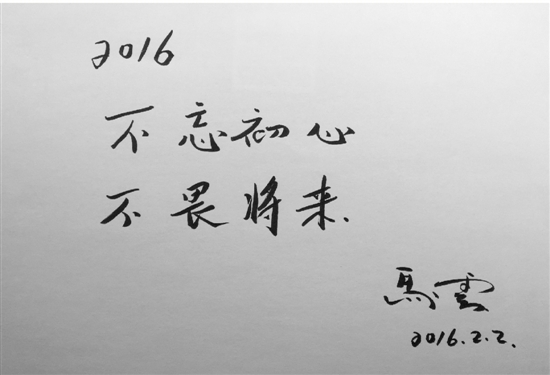 2016
不忘初心
不畏将来.
馬雲
2016.2.2.